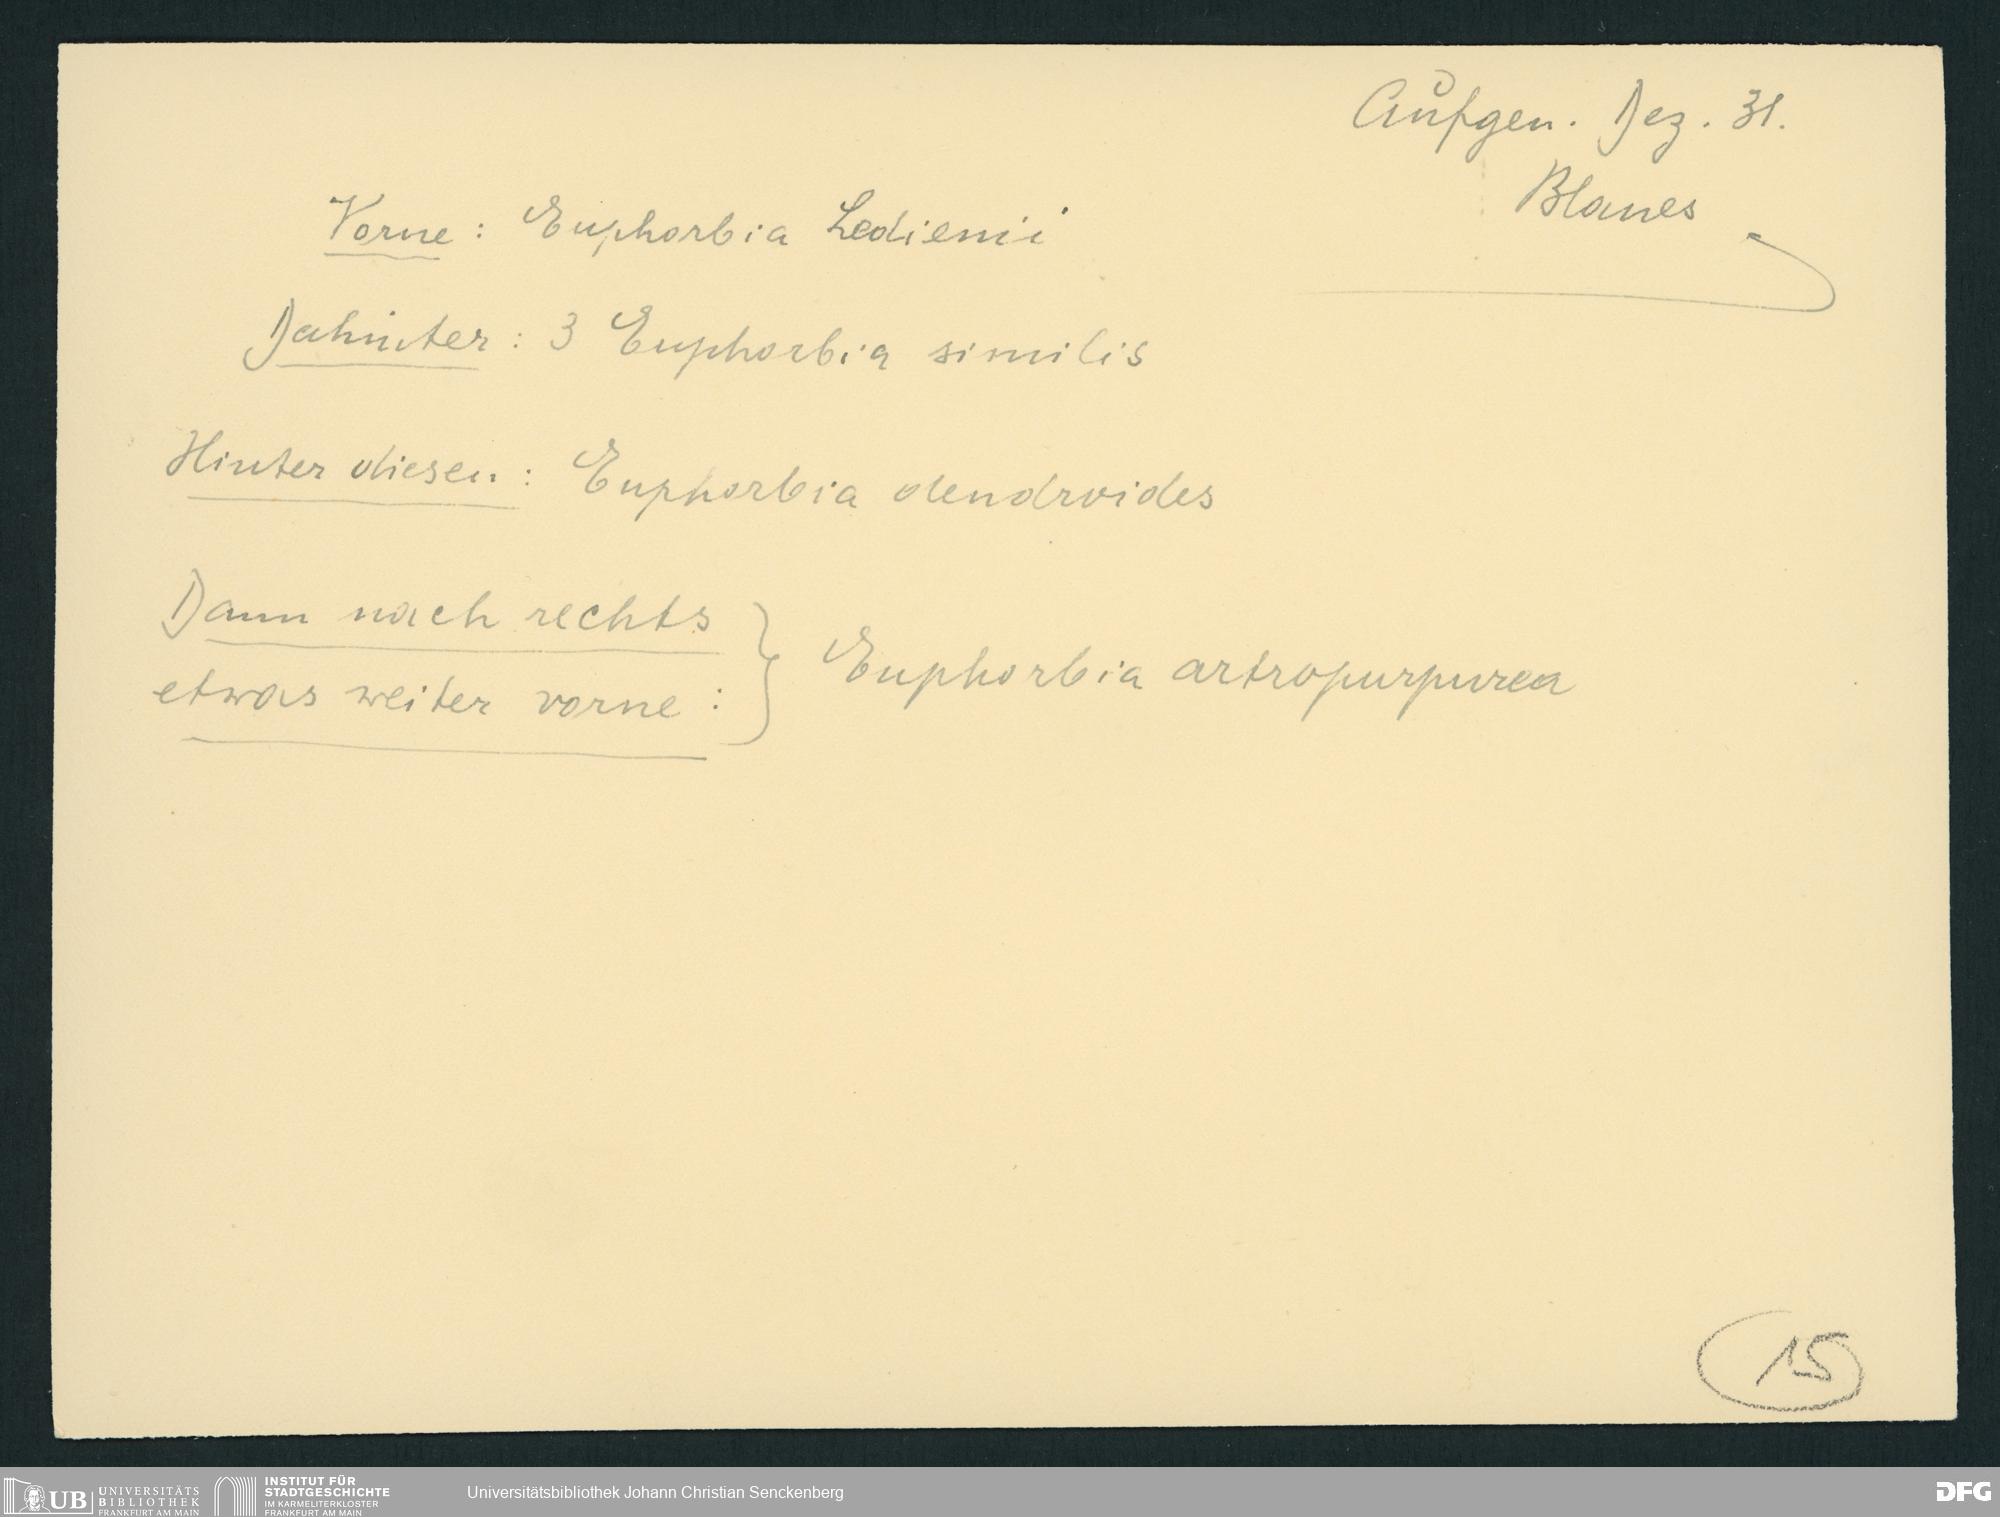 Aufgen. Dez. 31.
Blanes
Vorne: Euphorbia Ledienii
Dahinter: 3 Euphorbia similis
Hinter diesen: Euphorbia dendroides
Dann nach rechts
etwas weiter vorne:
Euphorbia artropurpurea
15
UB
UNIVERSITÄTS
BIBLIOTHEK
FRANKFURT AM MAIN
INSTITUT FÜR
STADTGESCHICHTE
IM KARMELITERKLOSTER
FRANKFURT AM MAIN
Universitätsbibliothek Johann Christian Senckenberg
DFG